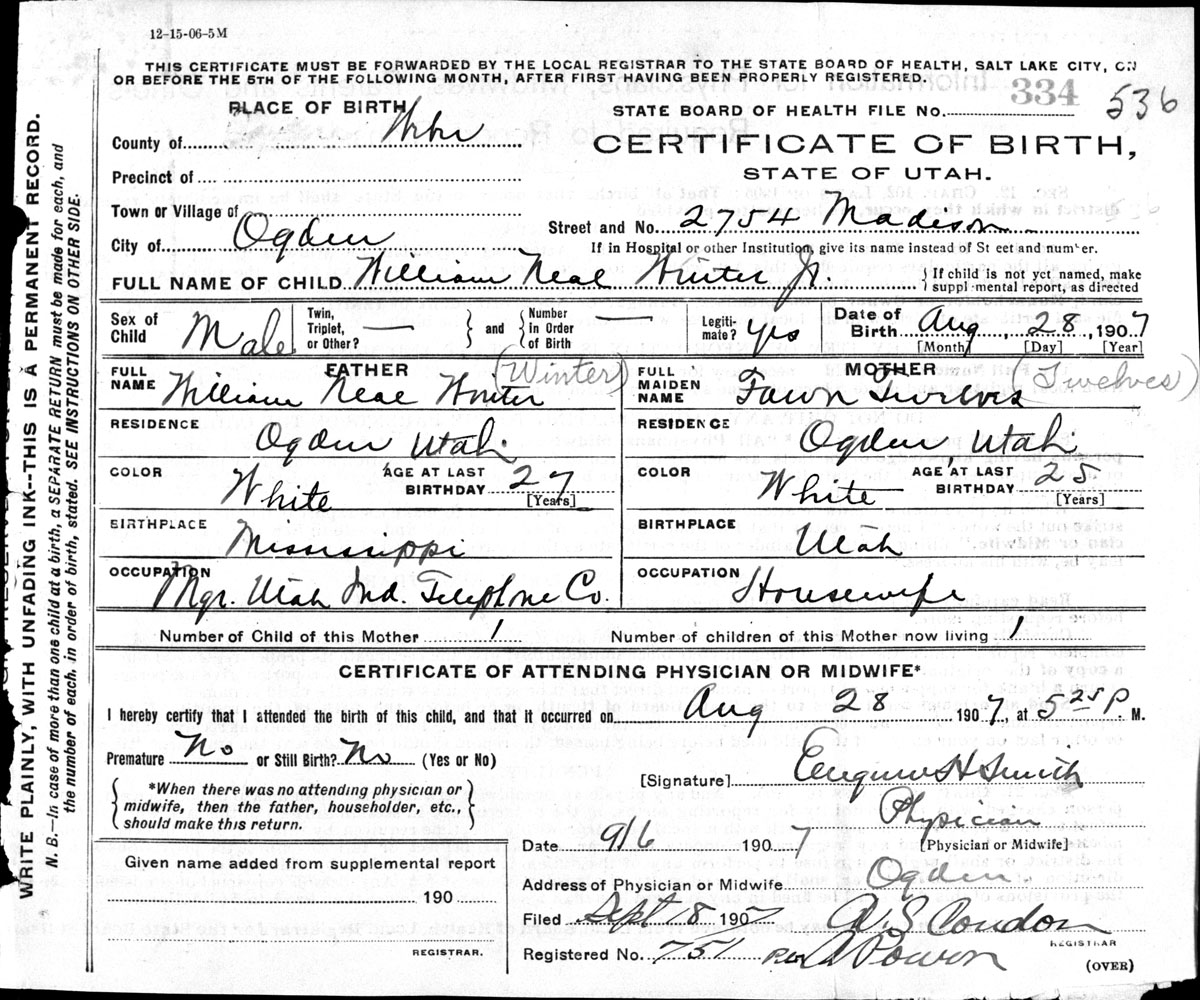 12-15-06-5M
THIS CERTIFICATE MUST BE FORWARDED BY THE LOCAL REGISTRAR TO THE STATE BOARD OF HEALTH, SALT LAKE CITY, ON
OR BEFORE THE 5TH OF THE FOLLOWING MONTH, AFTER FIRST HAVING BEEN PROPERLY REGISTERED.
PLACE OF BIRTH
STATE BOARD OF HEALTH FILE No. 334 536
County of
CERTIFICATE OF BIRTH,
STATE OF UTAH.
Precinct of
Town or Village of
Street and No. 2754 Madison
City of Ogden
If in Hospital or other Institution, give its name instead of St eet and number.
FULL NAME OF CHILD William Neal Winter Jr.
{If child is not yet named, make
suppl mental report, as directed
Sex of Child Male
Twin, Triplet, or Other? —
and
Number in Order of Birth —
Legiti- mate? yes
Date of Birth Aug 28, 1907
[Month] [Day] [Year]
FATHER
FULL NAME William Neal Winter (Winter)
MOTHER
FULL MAIDEN NAME Fawn Twelves (Twelves)
RESIDENCE Ogden Utah.
RESIDENCE Ogden, Utah.
COLOR White AGE AT LAST BIRTHDAY 27 [Years]
COLOR White AGE AT LAST BIRTHDAY 25 [Years]
BIRTHPLACE Mississippi
BIRTHPLACE Utah
OCCUPATION Mgr. Utah Ind. Telephone Co.
OCCUPATION Housewife
Number of Child of this Mother 1 Number of children of this Mother now living 1
CERTIFICATE OF ATTENDING PHYSICIAN OR MIDWIFE*
I hereby certify that I attended the birth of this child, and that it occurred on Aug 28 1907, at 3 25 P. M.
Premature No or Still Birth? No (Yes or No)
[Signature] Eugene H Smith
*When there was no attending physician or
midwife, then the father, householder, etc.,
should make this return.
Physician
[Physician or Midwife]
Date 9/6 1907
Given name added from supplemental report
190
REGISTRAR.
Address of Physician or Midwife Ogden
Filed Sept 18 1907 A. S. Condon
REGISTRAR
Registered No. 751
(OVER)
WRITE PLAINLY, WITH UNFADING INK--THIS IS A PERMANENT RECORD.
N. B.—In case of more than one child at a birth, a SEPARATE RETURN must be made for each, and
the number of each, in order of birth, stated. SEE INSTRUCTIONS ON OTHER SIDE.